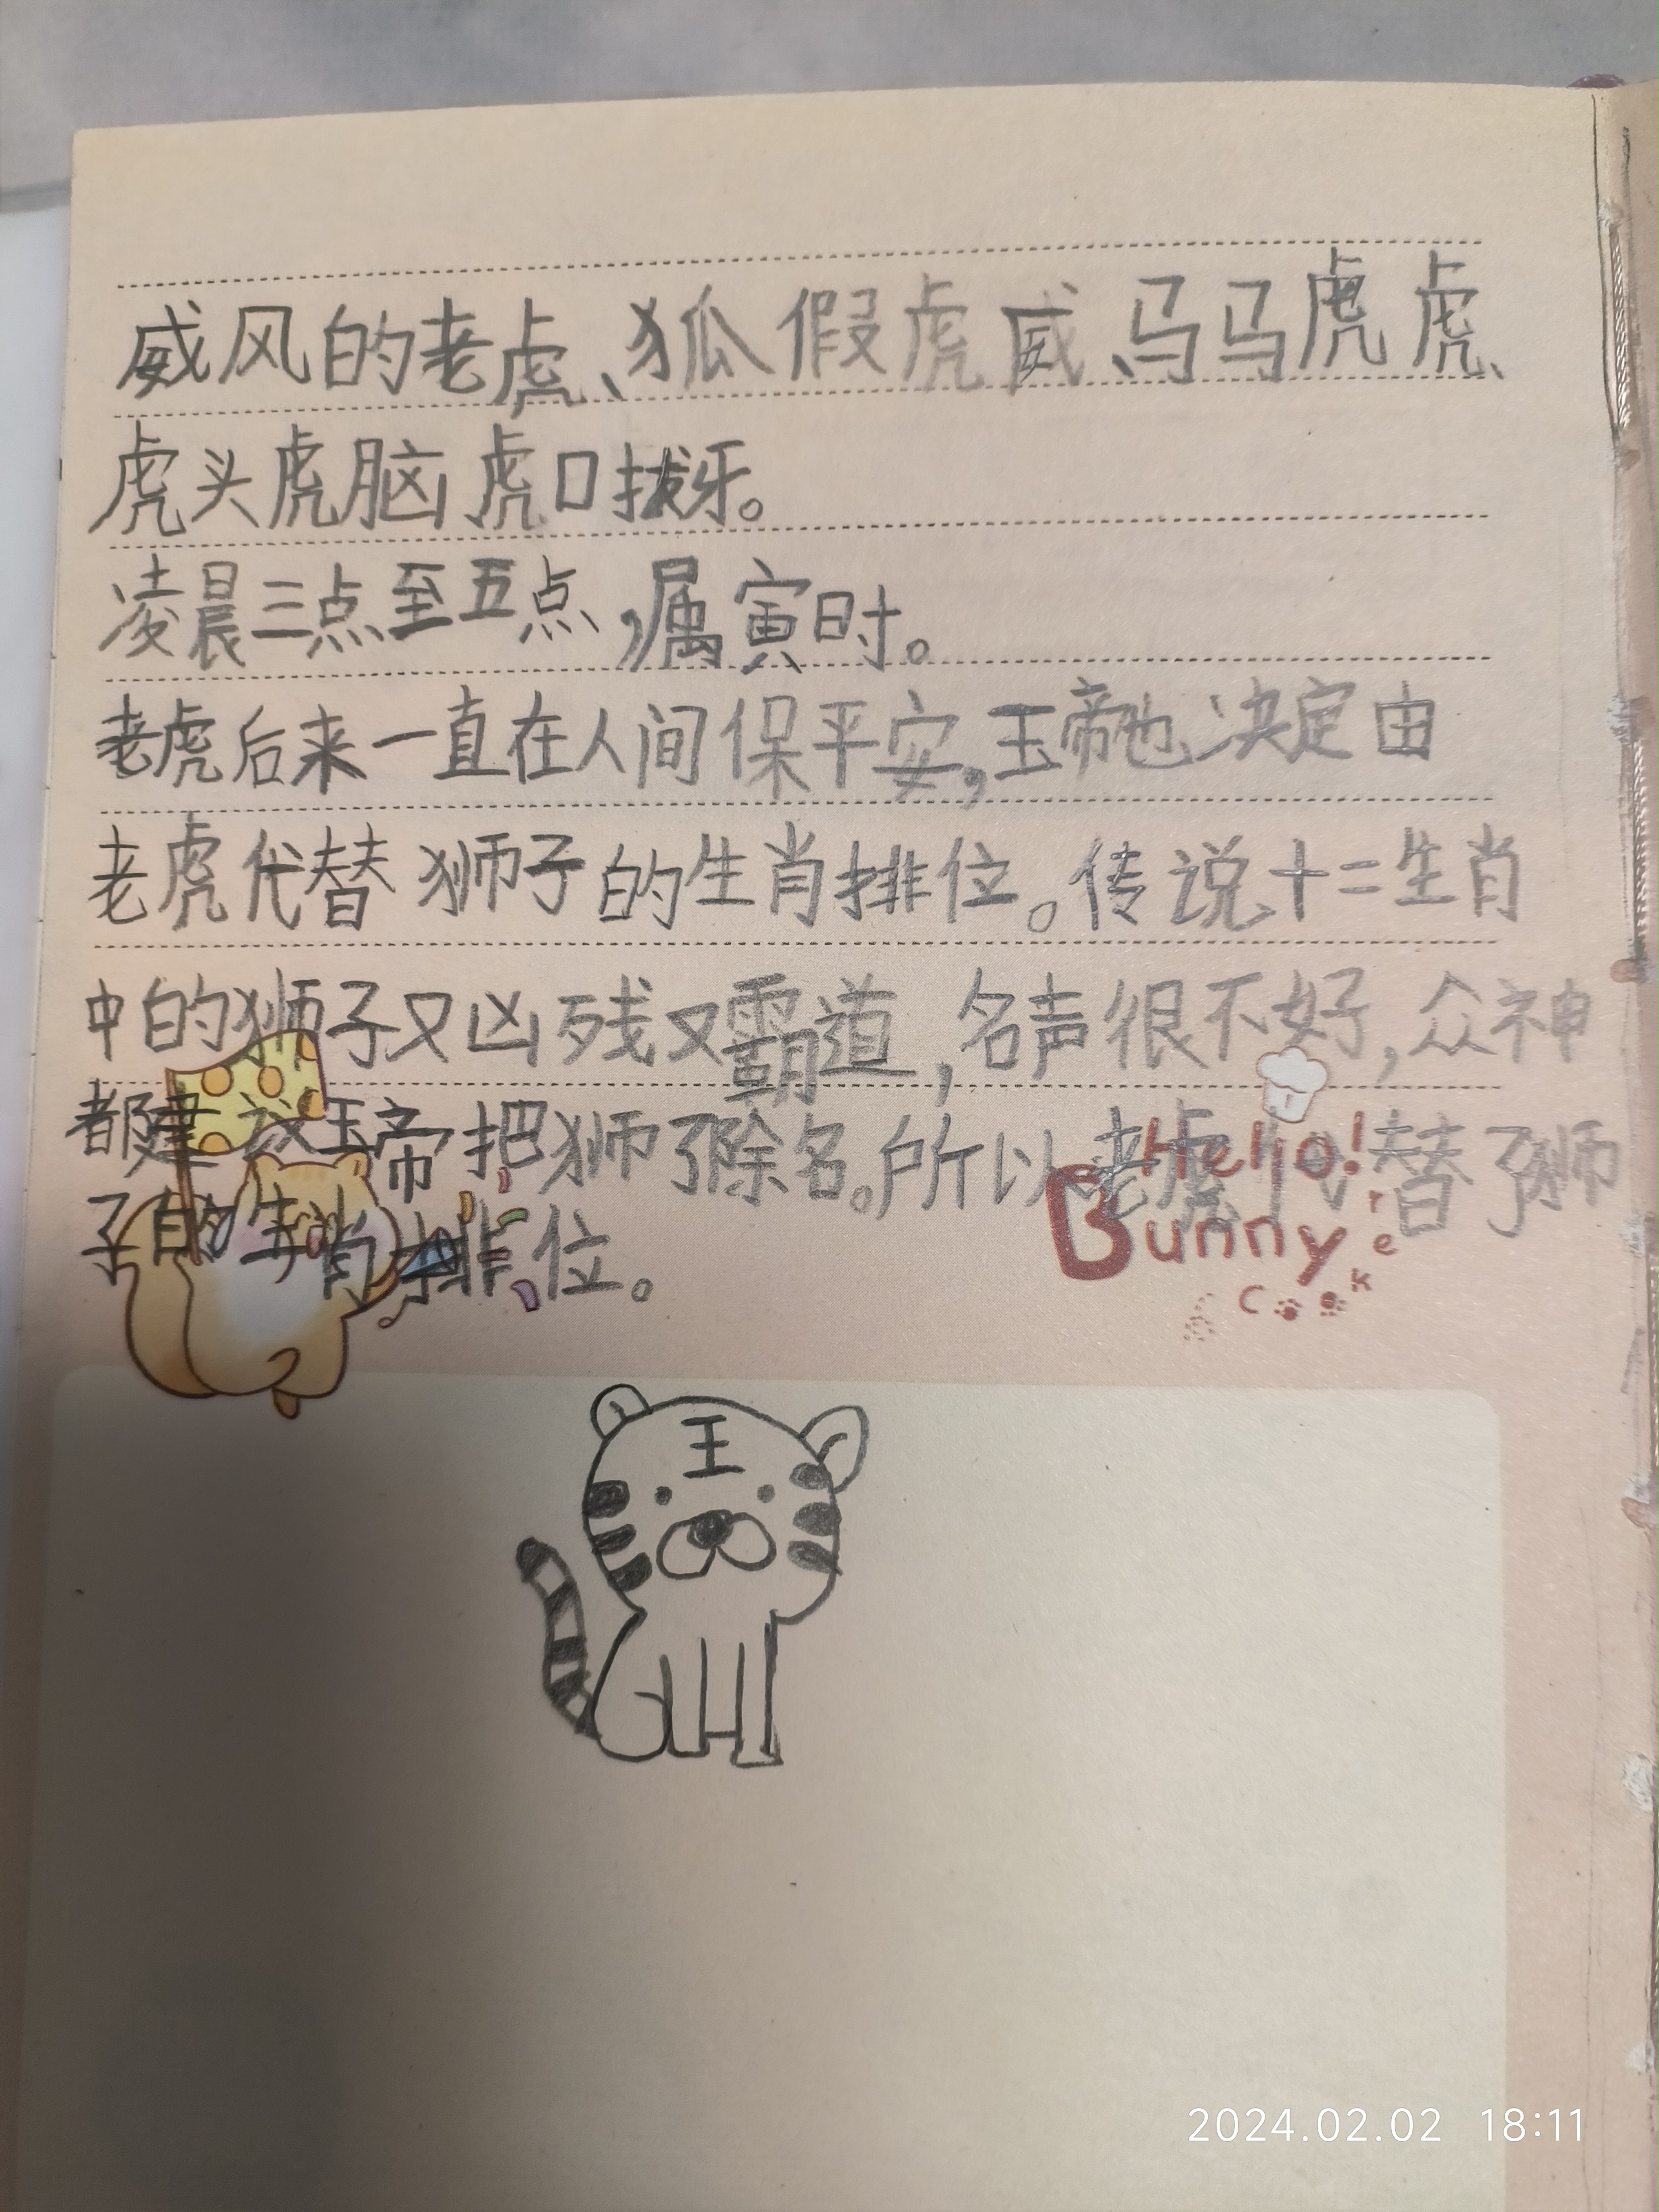 威风的老虎、狐假虎威、马马虎虎、
虎头虎脑、虎口拔牙。
凌晨三点至五点,属寅时。
老虎后来一直在人间保平安,玉帝也决定由
老虎代替狮子的生肖排位。传说十二生肖
中的狮子又凶残又霸道,名声很不好,众神
都建议玉帝把狮子除名。所以老虎代替了狮
子的生肖排位。
Hello!
Bunny
Cook
王
2024.02.02 18:11